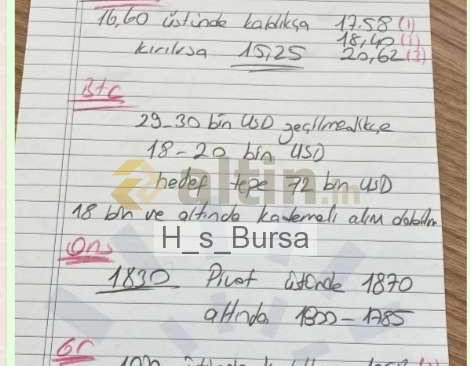 16,60 üstünde kaldıkça 17.58 (1)
18,40 (2)
kırılırsa 15,25 20,62 (3)
Btc
29-30 bin USD geçilmedikçe
18-20 bin USD
hedef tepe 72 bin USD
altin.in
18 bin ve altında kademeli alım
H_s_Bursa
Ons
1830 Pivot üstünde 1870
altında 1800-1785
Gr